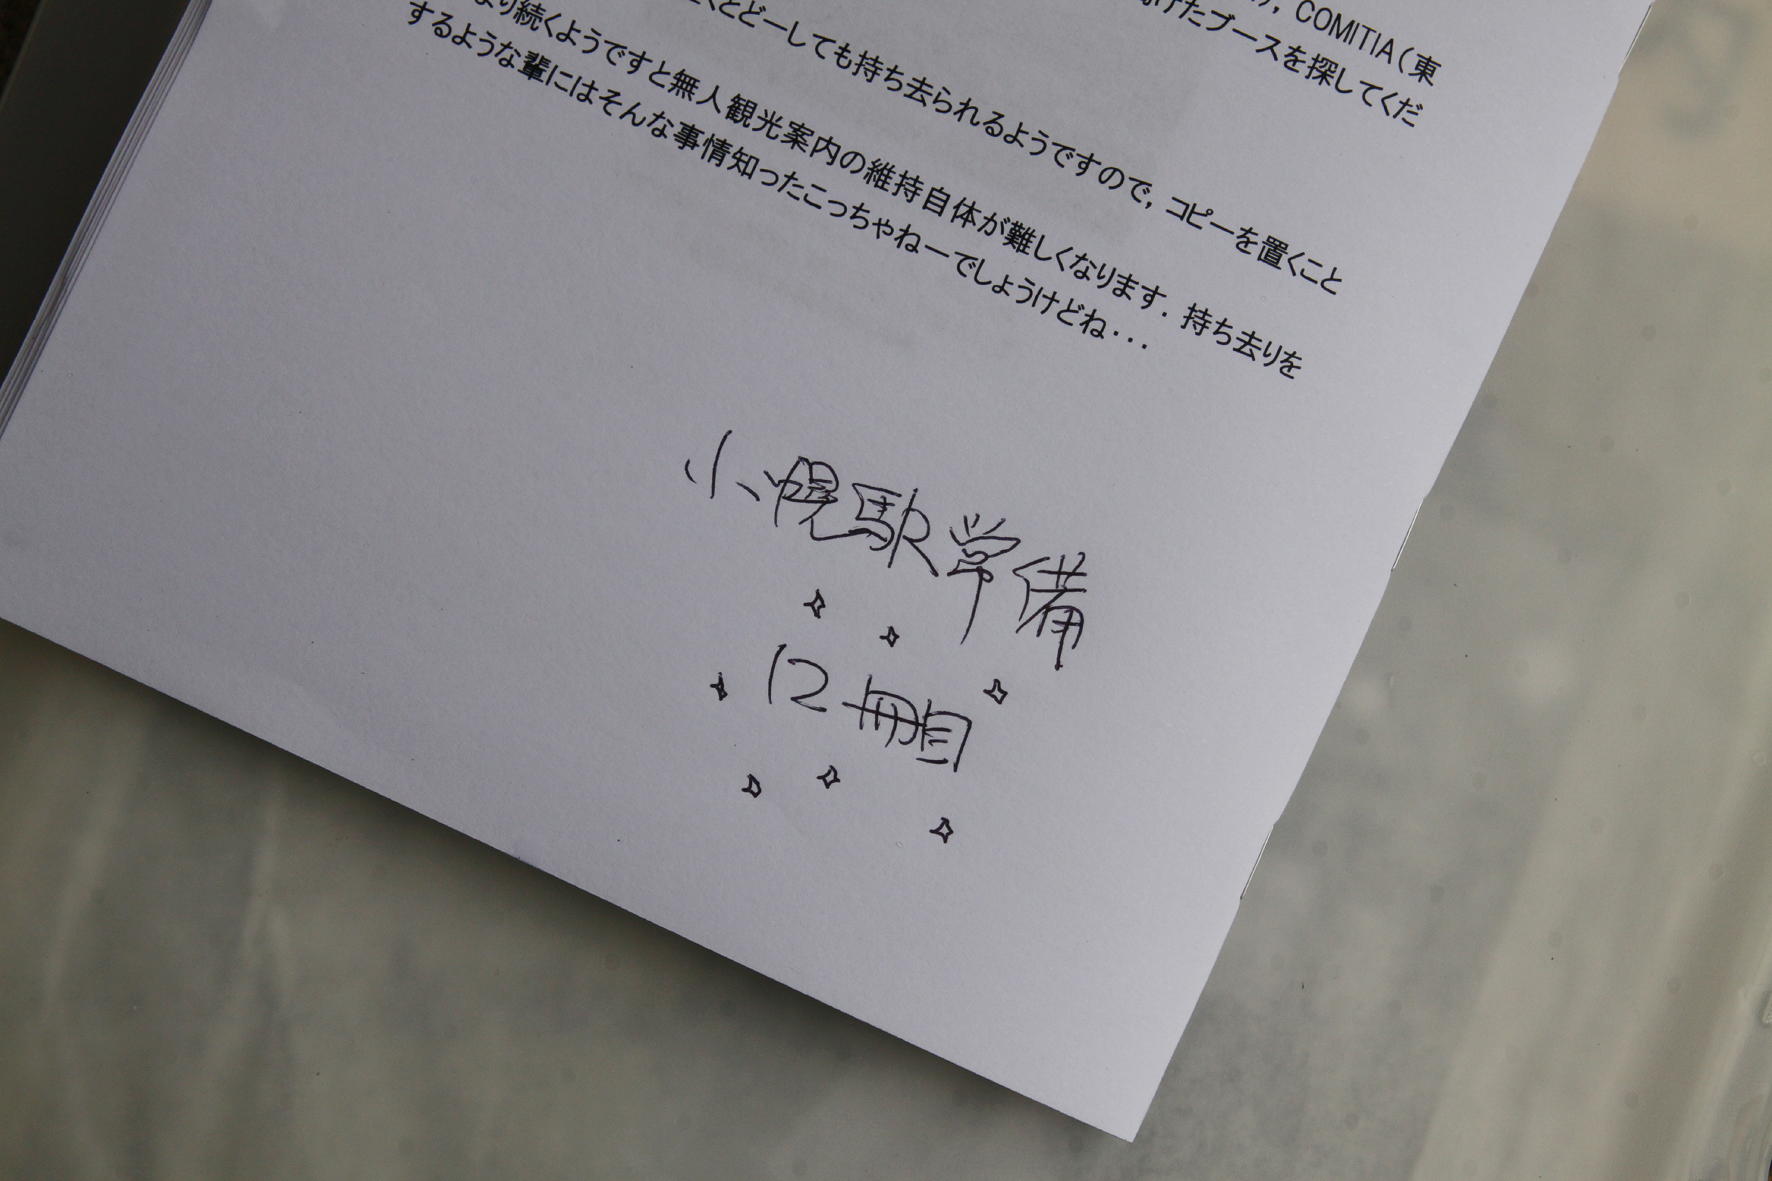 , COMITIA(東
けたブースを探してくだ
くとどーしても持ち去られるようですので, コピーを置くこと
より続くようですと無人観光案内の維持自体が難しくなります. 持ち去りを
するような輩にはそんな事情知ったこっちゃねーでしょうけどね...
小幌駅常備
12冊目